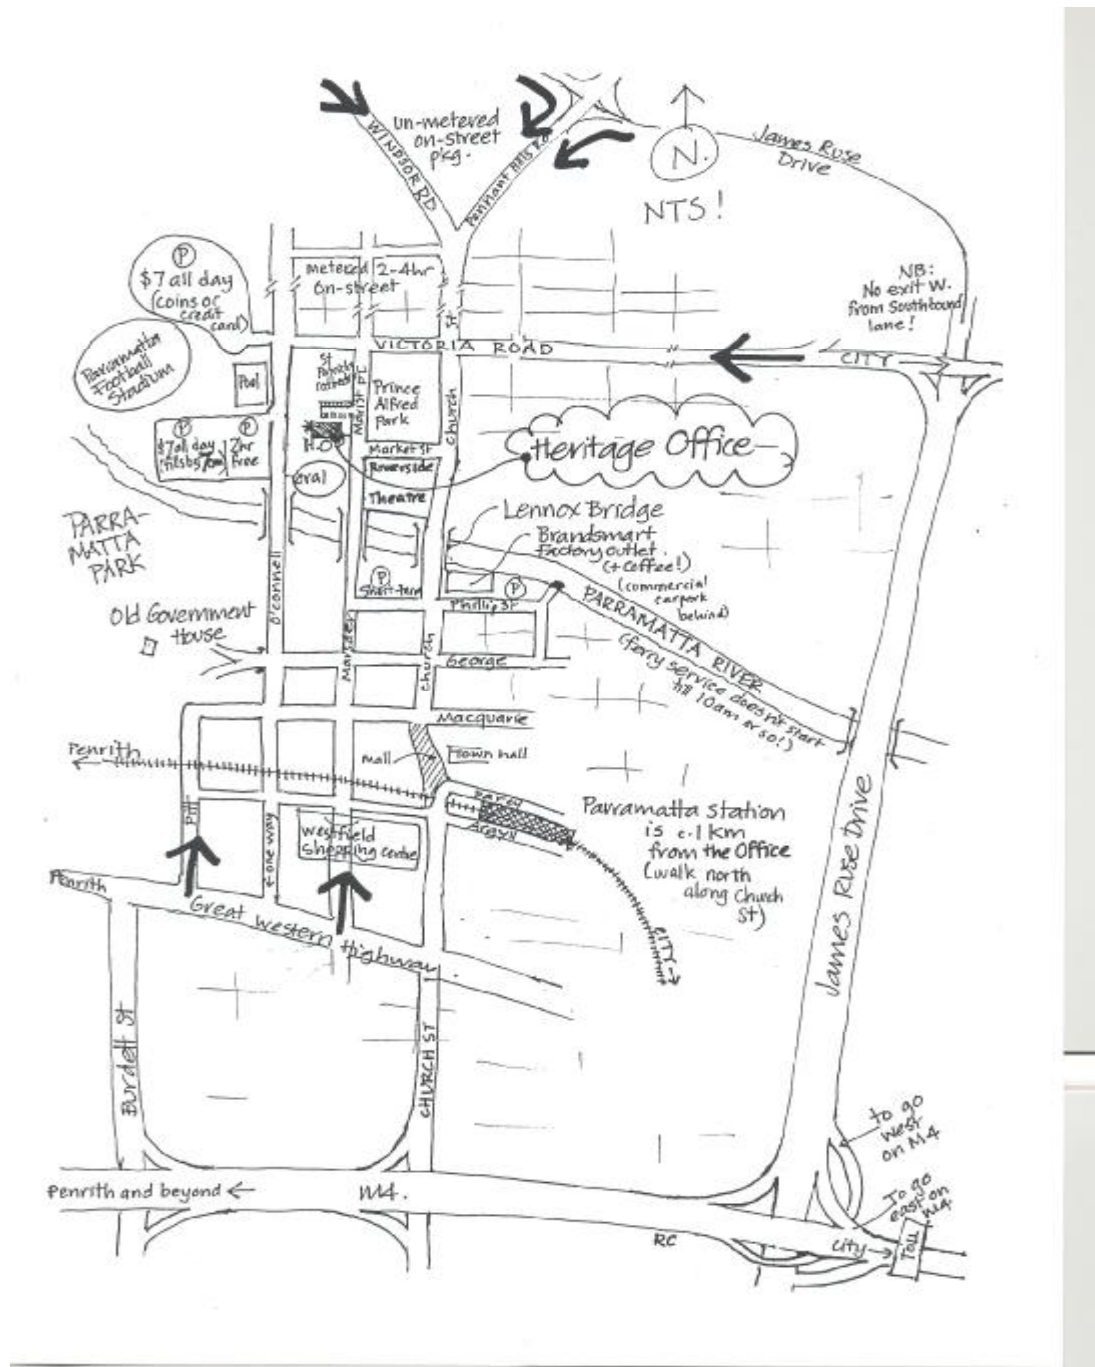 WINDSOR RD
un-metered
on-street
pkg.
Pennant Hills Rd
N.
NTS!
James Ruse
Drive
P
$7 all day
(coins or
credit
card)
metered 2-4hr
on-street
NB:
No exit W.
from Southbound
lane!
St
VICTORIA ROAD
CITY
Parramatta
Football
Stadium
Pool
St
Patricks
Cathedral
MARIST PL
Prince
Alfred
Park
church
Heritage Office
P
$7 all day
P
2hr
Free
H.O.
Market St
Riverside
Theatre
oval
PARRA-
MATTA
PARK
Lennox Bridge
Brandsmart
Factory outlet.
(+ coffee!)
(commercial
carpark
behind)
P
Short-term
P
Phillip St
PARRAMATTA RIVER
(ferry service doesn't start
till 10am or so!)
O'connell
Old Government
House
Marsden
church
George
Macquarie
Penrith
mall
Town hall
Darcy
Argyll
Parramatta Station
is c.1km
from the Office
(walk north
along Church
St)
Pitt
one way
Westfield
Shopping centre
CITY
Penrith
Great Western Highway
James Ruse Drive
Burdett St
CHURCH ST
to go
west
on M4
Penrith and beyond
M4.
To go
east on
M4.
RC
City
Toll